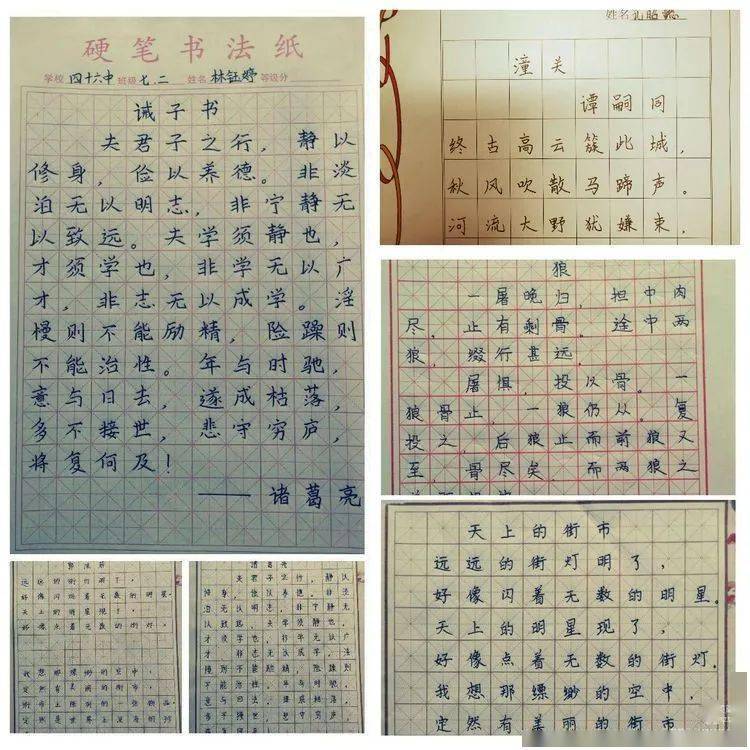 硬笔书法纸
学校 四十六中 班级 七.二 姓名 林钰婷 等级分
诫子书
夫君子之行，静以
修身，俭以养德。非淡
泊无以明志，非宁静无
以致远。夫学须静也，
才须学也，非学无以广
才，非志无以成学。淫
慢则不能励精，险躁则
不能治性。年与时驰，
意与日去，遂成枯落，
多不接世，悲守穷庐，
将复何及！
——诸葛亮
姓名
潼关
谭嗣同
终古高云簇此城，
秋风吹散马蹄声。
河流大野犹嫌束，
狼
一屠晚归，担中肉
尽，止有剩骨。途中两
狼，缀行甚远。
屠惧，投以骨。一
狼骨止，一狼仍从。复
投之，后狼止而前狼又
至，骨尽矣，而两狼之
天上的街市
远远的街灯明了，
好像闪着无数的明星。
天上的明星现了，
好像点着无数的街灯。
我想那缥缈的空中，
定然有美丽的街市
郭沫若
远远的街灯明了，
好像闪着无数的明星。
天上的明星现了，
好像点着无数的街灯。
我想那缥缈的空中，
定然有美丽的街市。
街市上陈列的一些物品，
定然是世界上没有的珍
诸葛亮
夫君子之行，静以
修身，俭以养德。非淡
泊无以明志，非宁静无
以致远。夫学须静也，
才须学也，非学无以广
才，非志无以成学。淫
慢则不能励精，险躁则
不能治性。年与时驰，
意与日去，遂成枯落，
多不接世，悲守穷庐，